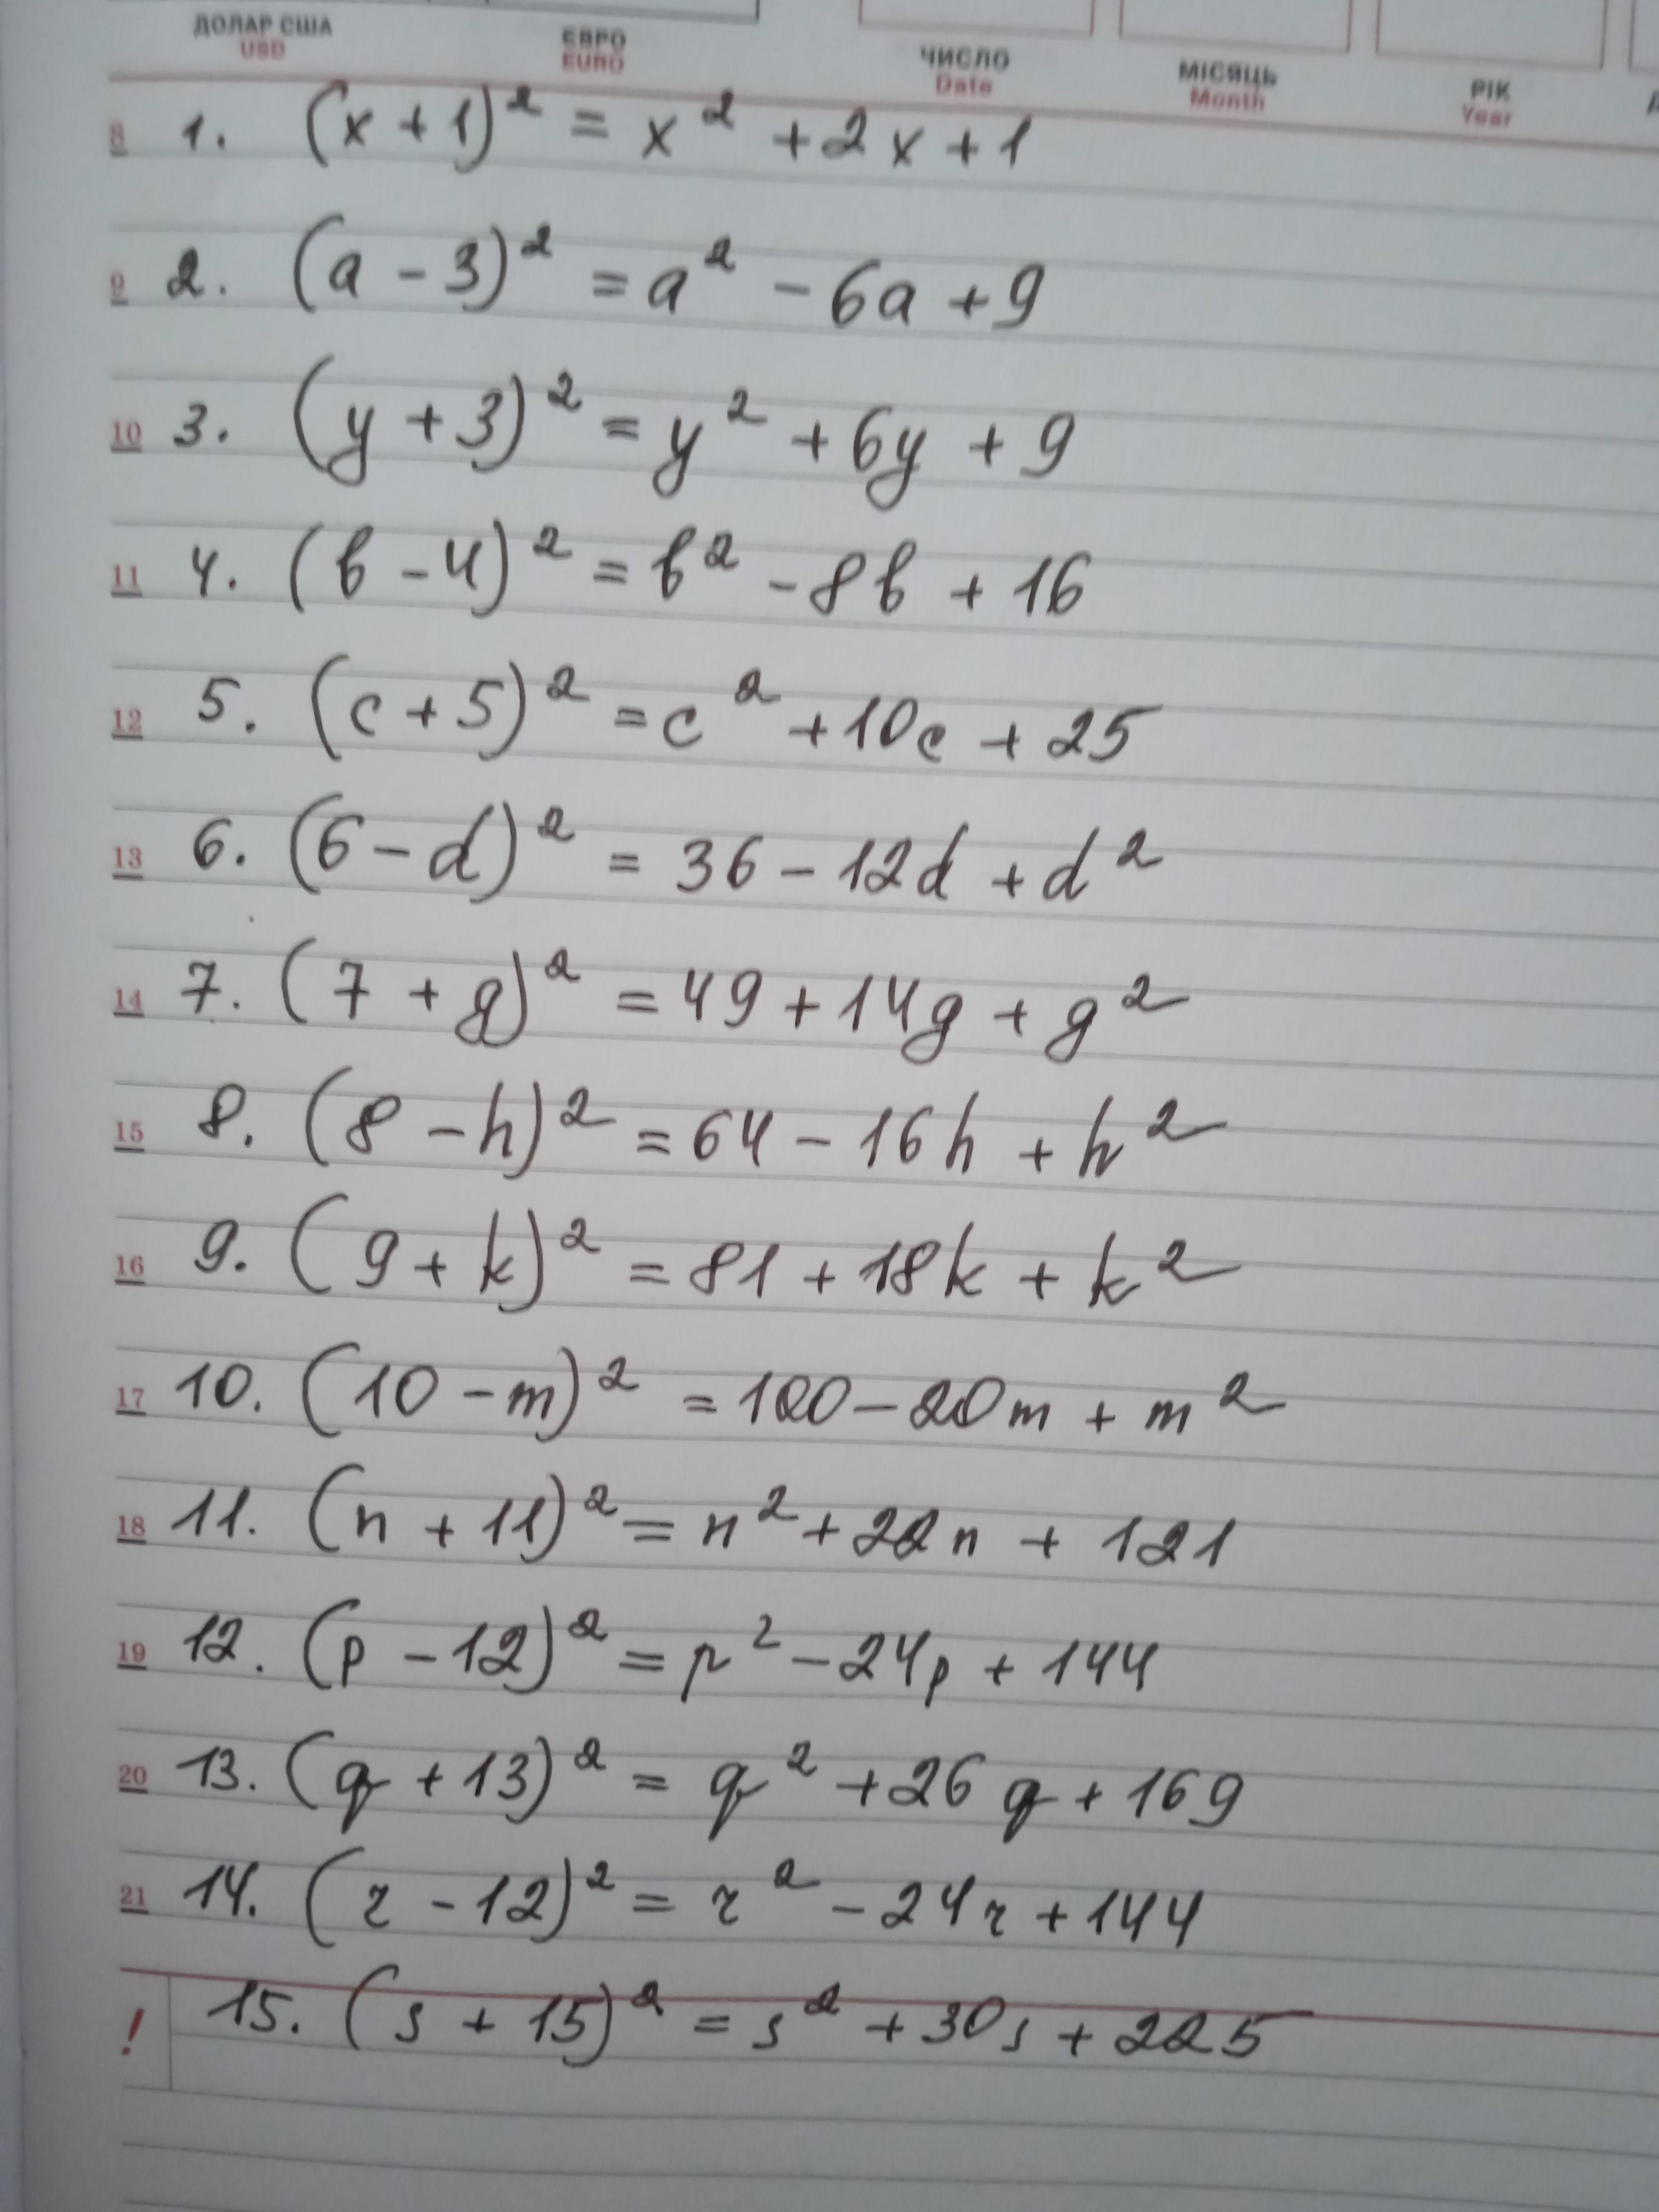 ДОЛАР США ЄВРО ЧИСЛО МІСЯЦЬ РІК
USD EURO Date Month Year
8 1. (x + 1)² = x² + 2x + 1
9 2. (a - 3)² = a² - 6a + 9
10 3. (y + 3)² = y² + 6y + 9
11 4. (b - 4)² = b² - 8b + 16
12 5. (c + 5)² = c² + 10c + 25
13 6. (6 - d)² = 36 - 12d + d²
14 7. (7 + g)² = 49 + 14g + g²
15 8. (8 - h)² = 64 - 16h + h²
16 9. (9 + k)² = 81 + 18k + k²
17 10. (10 - m)² = 100 - 20m + m²
18 11. (n + 11)² = n² + 22n + 121
19 12. (p - 12)² = p² - 24p + 144
20 13. (q + 13)² = q² + 26q + 169
21 14. (r - 12)² = r² - 24r + 144
! 15. (s + 15)² = s² + 30s + 225